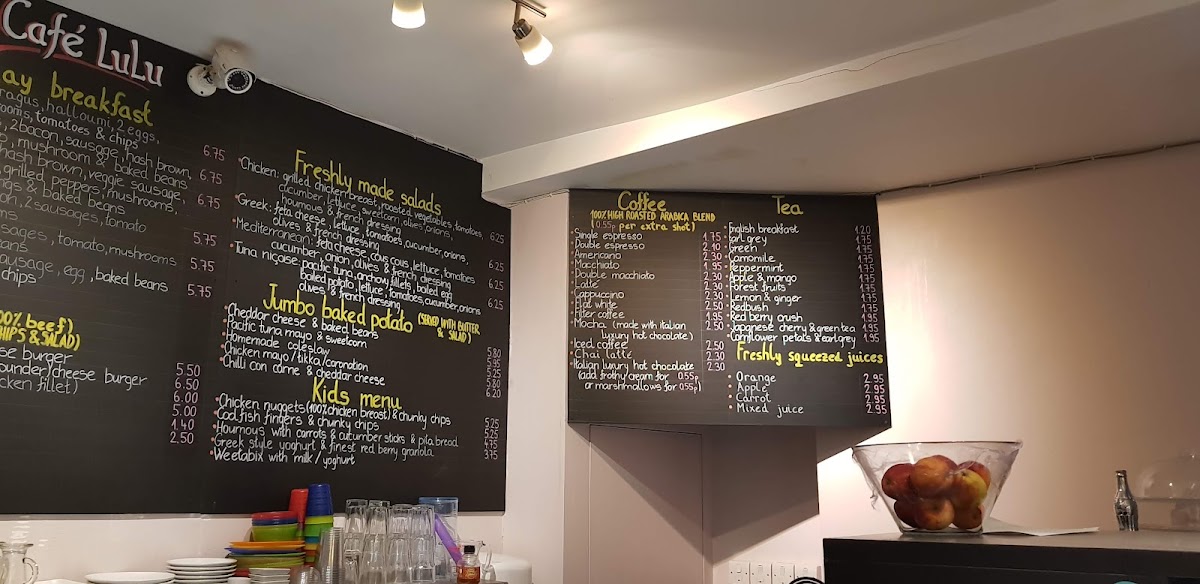 Café LuLu
ay breakfast
ragus, halloumi, 2 eggs,
rooms, tomatoes & chips 6.75
, 2 bacon, sausage, hash brown,
, mushroom & baked beans 6.75
hash brown, veggie sausage,
, grilled peppers, mushrooms, 6.75
& baked beans
, 2 sausages, tomato
ms 5.75
sages, tomato, mushrooms
eans 5.75
ausage, egg, baked beans
chips 5.75
00% beef)
HIPS & SALAD)
se burger 5.50
ounder/cheese burger 6.50
cken fillet) 6.00
5.00
1.40
2.50
Freshly made salads
Chicken: grilled chicken breast, roasted vegetables, tomatoes,
cucumber, lettuce, sweetcorn, olives, onions,
houmous & french dressing 6.25
Greek: feta cheese, lettuce, tomatoes, cucumber, onions,
olives & french dressing 6.25
Mediterranean: feta cheese, cous cous, lettuce, tomatoes
cucumber, onion, olives & french dressing 6.25
Tuna niçoise: pacific tuna, anchovy fillets, boiled egg
potato, lettuce, tomatoes, cucumber, onions
olives & french dressing 6.25
Jumbo baked potato (SERVED WITH BUTTER
& SALAD)
Cheddar cheese & baked beans 5.80
Pacific tuna mayo & sweetcorn 5.95
Homemade coleslaw 5.25
Chicken mayo/tikka/coronation 5.80
Chilli con carne & cheddar cheese 6.20
Kids menu
Chicken nuggets (100% chicken breast) & chunky chips 5.25
Cod fish fingers & chunky chips 5.25
Houmous with carrots & cucumber sticks & pita bread 5.25
Greek style yoghurt & finest red berry granola 4.75
Weetabix with milk/yoghurt 3.75
Coffee
100% HIGH ROASTED ARABICA BLEND
(0.55p per extra shot)
Single espresso 1.75
Double espresso 2.10
Americano 2.30
Macchiato 1.95
Double macchiato 2.30
Latte 2.30
Cappuccino 2.30
Flat white 2.50
Filter coffee 1.95
Mocha (made with italian 2.50
luxury hot chocolate)
Iced coffee 2.50
Chai latte 2.30
Italian luxury hot chocolate 2.30
(add frothy cream for 0.55p
or marshmallows for 0.55p)
Tea
English breakfast 1.20
Earl grey 1.75
Green 1.75
Camomile 1.75
Peppermint 1.75
Apple & mango 1.75
Forest fruits 1.75
Lemon & ginger 1.75
Redbush 1.75
Red berry crush 1.95
Japanese cherry & green tea 1.95
Cornflower petals & earl grey 1.95
Freshly squeezed juices
Orange 2.95
Apple 2.95
Carrot 2.95
Mixed juice 2.95